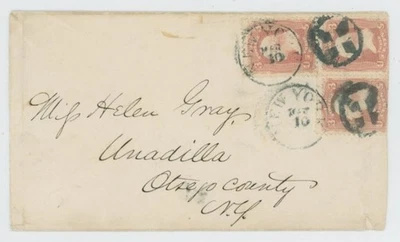 NEW YORK
MAR
10
NEW YORK
MAR
10
Miss Helen Gray.
Unadilla
Otsego county
N.Y.